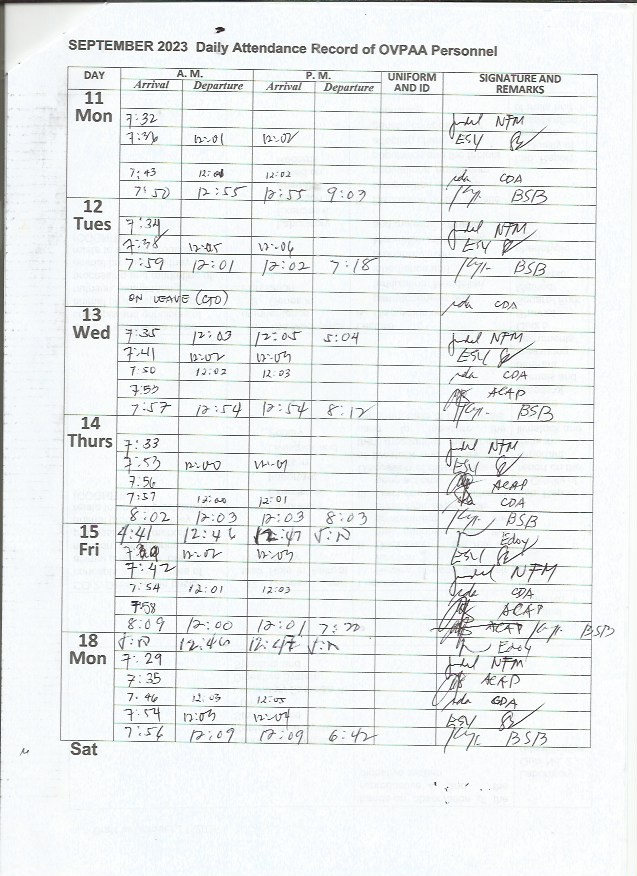 SEPTEMBER 2023 Daily Attendance Record of OVPAA Personnel
DAY A. M. P. M. UNIFORM AND ID SIGNATURE AND REMARKS
Arrival Departure Arrival Departure
11 Mon
7:32 NFM
7:36 12:01 12:02 ESY
7:43 12:01 12:02 CDA
7:50 12:55 12:55 9:03 BSB
12 Tues
7:34 NFM
7:38 12:05 12:06 ESY
7:59 12:01 12:02 7:18 BSB
ON LEAVE (CTO) CDA
13 Wed
7:35 12:03 12:05 5:04 NFM
7:41 12:02 12:03 ESY
7:50 12:02 12:03 CDA
7:53 ACAP
7:57 12:54 12:54 8:12 BSB
14 Thurs
7:33 NFM
7:53 12:00 12:01 ESY
7:56 ACAP
7:57 12:00 12:01 CDA
8:02 12:03 12:03 8:03 BSB
15 Fri
4:41 12:46 12:47 Edoy
12:02 12:03 ESY
7:42 NFM
7:54 12:01 12:03 CDA
7:58 ACAP
8:09 12:00 12:01 7:20 ACAP BSB
18 Mon
12:46 12:47 Edoy
7:29 NFM
7:35 ACAP
7:46 12:03 12:05 CDA
7:54 12:03 12:04 ESY
7:56 12:09 12:09 6:42 BSB
Sat